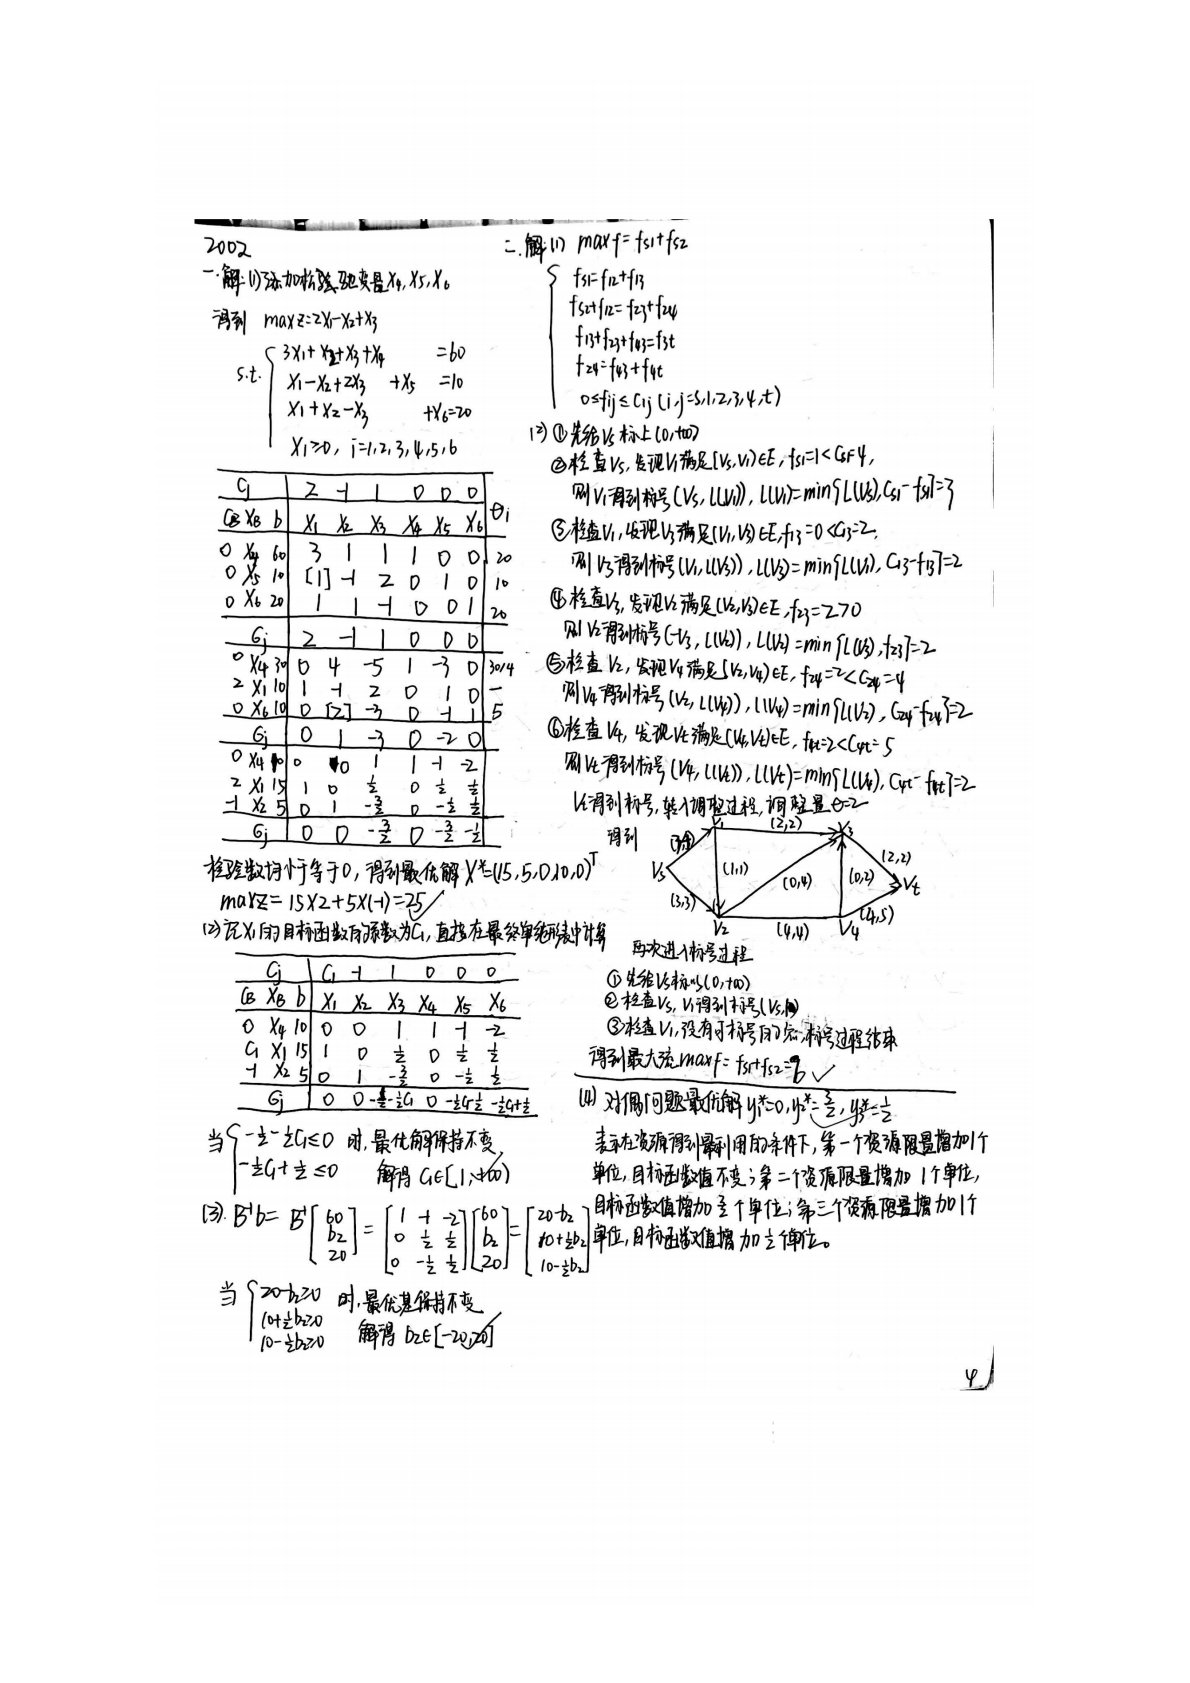 2002
一.解:(1)添加松弛变量X4,X5,X6
得到 maxz=2X1-X2+X3
s.t. { 3X1+X2+X3+X4 =60
X1-X2+2X3 +X5 =10
X1+X2-X3 +X6=20
Xj≥0, j=1,2,3,4,5,6
Cj 2 -1 1 0 0 0 θi
CB XB b X1 X2 X3 X4 X5 X6
0 X4 60 3 1 1 1 0 0 20
0 X5 10 [1] -1 2 0 1 0 10
0 X6 20 1 1 -1 0 0 1 20
σj 2 -1 1 0 0 0
0 X4 30 0 4 -5 1 -3 0 30/4
2 X1 10 1 -1 2 0 1 0 -
0 X6 10 0 [2] -3 0 -1 1 5
σj 0 1 -3 0 -2 0
0 X4 10 0 0 1 1 -1 -2
2 X1 15 1 0 1/2 0 1/2 1/2
-1 X2 5 0 1 -3/2 0 -1/2 1/2
σj 0 0 -3/2 0 -3/2 -1/2
检验数均小于等于0, 得到最优解X*=(15,5,0,10,0)T
maxz=15X2+5X(-1)=25
(2)记X1的目标函数的系数为C1,直接在最终单纯形表中计算
Cj C1 -1 1 0 0 0
CB XB b X1 X2 X3 X4 X5 X6
0 X4 10 0 0 1 1 -1 -2
C1 X1 15 1 0 1/2 0 1/2 1/2
-1 X2 5 0 1 -3/2 0 -1/2 1/2
σj 0 0 -1/2-1/2C1 0 -1/2C1-1/2 -1/2C1+1/2
当{ -1/2-1/2C1≤0 时,最优解保持不变
-1/2C1+1/2≤0 解得 C1∈[1,+∞)
(3). B⁻¹b= B⁻¹[60 b2 20] = [1 -1 -2; 0 1/2 1/2; 0 -1/2 1/2][60 b2 20] = [20-b2; 10+1/2b2; 10-1/2b2]
当{ 20-b2≥0 时,最优基保持不变
10+1/2b2≥0
10-1/2b2≥0 解得 b2∈[-20,20]
二.解:(1) maxf=fs1+fs2
{ fs1=f12+f13
fs2+f12=f23+f24
f13+f23+f43=f3t
f24=f43+f4t
0≤fij≤Cij (i,j=s,1,2,3,4,t)
(2)①先给Vs标上(0,+∞)
②检查Vs,发现V1满足(Vs,V1)∈E,fs1=1<Cs1=4,
则V1得到标号(Vs,L(V1)),L(V1)=min{L(Vs),Cs1-fs1}=3
③检查V1,发现V3满足(V1,V3)∈E,f13=0<C13=2,
则V3得到标号(V1,L(V3)),L(V3)=min{L(V1),C13-f13}=2
④检查V3,发现V2满足(V2,V3)∈E,f23=2>0
则V2得到标号(-V3,L(V2)),L(V2)=min{L(V3),f23}=2
⑤检查V2,发现V4满足(V2,V4)∈E,f24=2<C24=4
则V4得到标号(V2,L(V4)),L(V4)=min{L(V2),C24-f24}=2
⑥检查V4,发现Vt满足(V4,Vt)∈E,f4t=2<C4t=5
则Vt得到标号(V4,L(Vt)),L(Vt)=min{L(V4),C4t-f4t}=2
Vt得到标号,转入调整过程,调整量θ=2
得到
V1 (2,2) V3
Vs (1,1) (0,4) (0,2) (2,2) Vt
(3,3) V2 (4,4) V4 (4,5)
再次进入标号过程
①先给Vs标以(0,+∞)
②检查Vs,V1得到标号(Vs,1)
③检查V1,没有可标号的点,标号过程结束
得到最大流maxf=fs1+fs2=6
(4) 对偶问题最优解y1*=0,y2*=3/2,y3*=1/2
表示在资源得到最利用的条件下,第一个资源限量增加1个
单位,目标函数值不变;第二个资源限量增加1个单位,
目标函数值增加3/2个单位;第三个资源限量增加1个
单位,目标函数值增加1/2个单位。
4